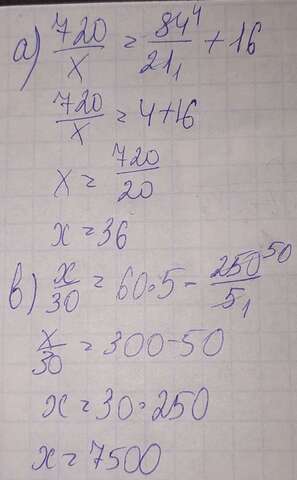 а) 720/x = 84⁴/21₁ + 16
720/x = 4+16
x = 720/20
x = 36
в) x/30 = 60·5 - 250⁵⁰/5₁
x/30 = 300-50
x = 30·250
x = 7500